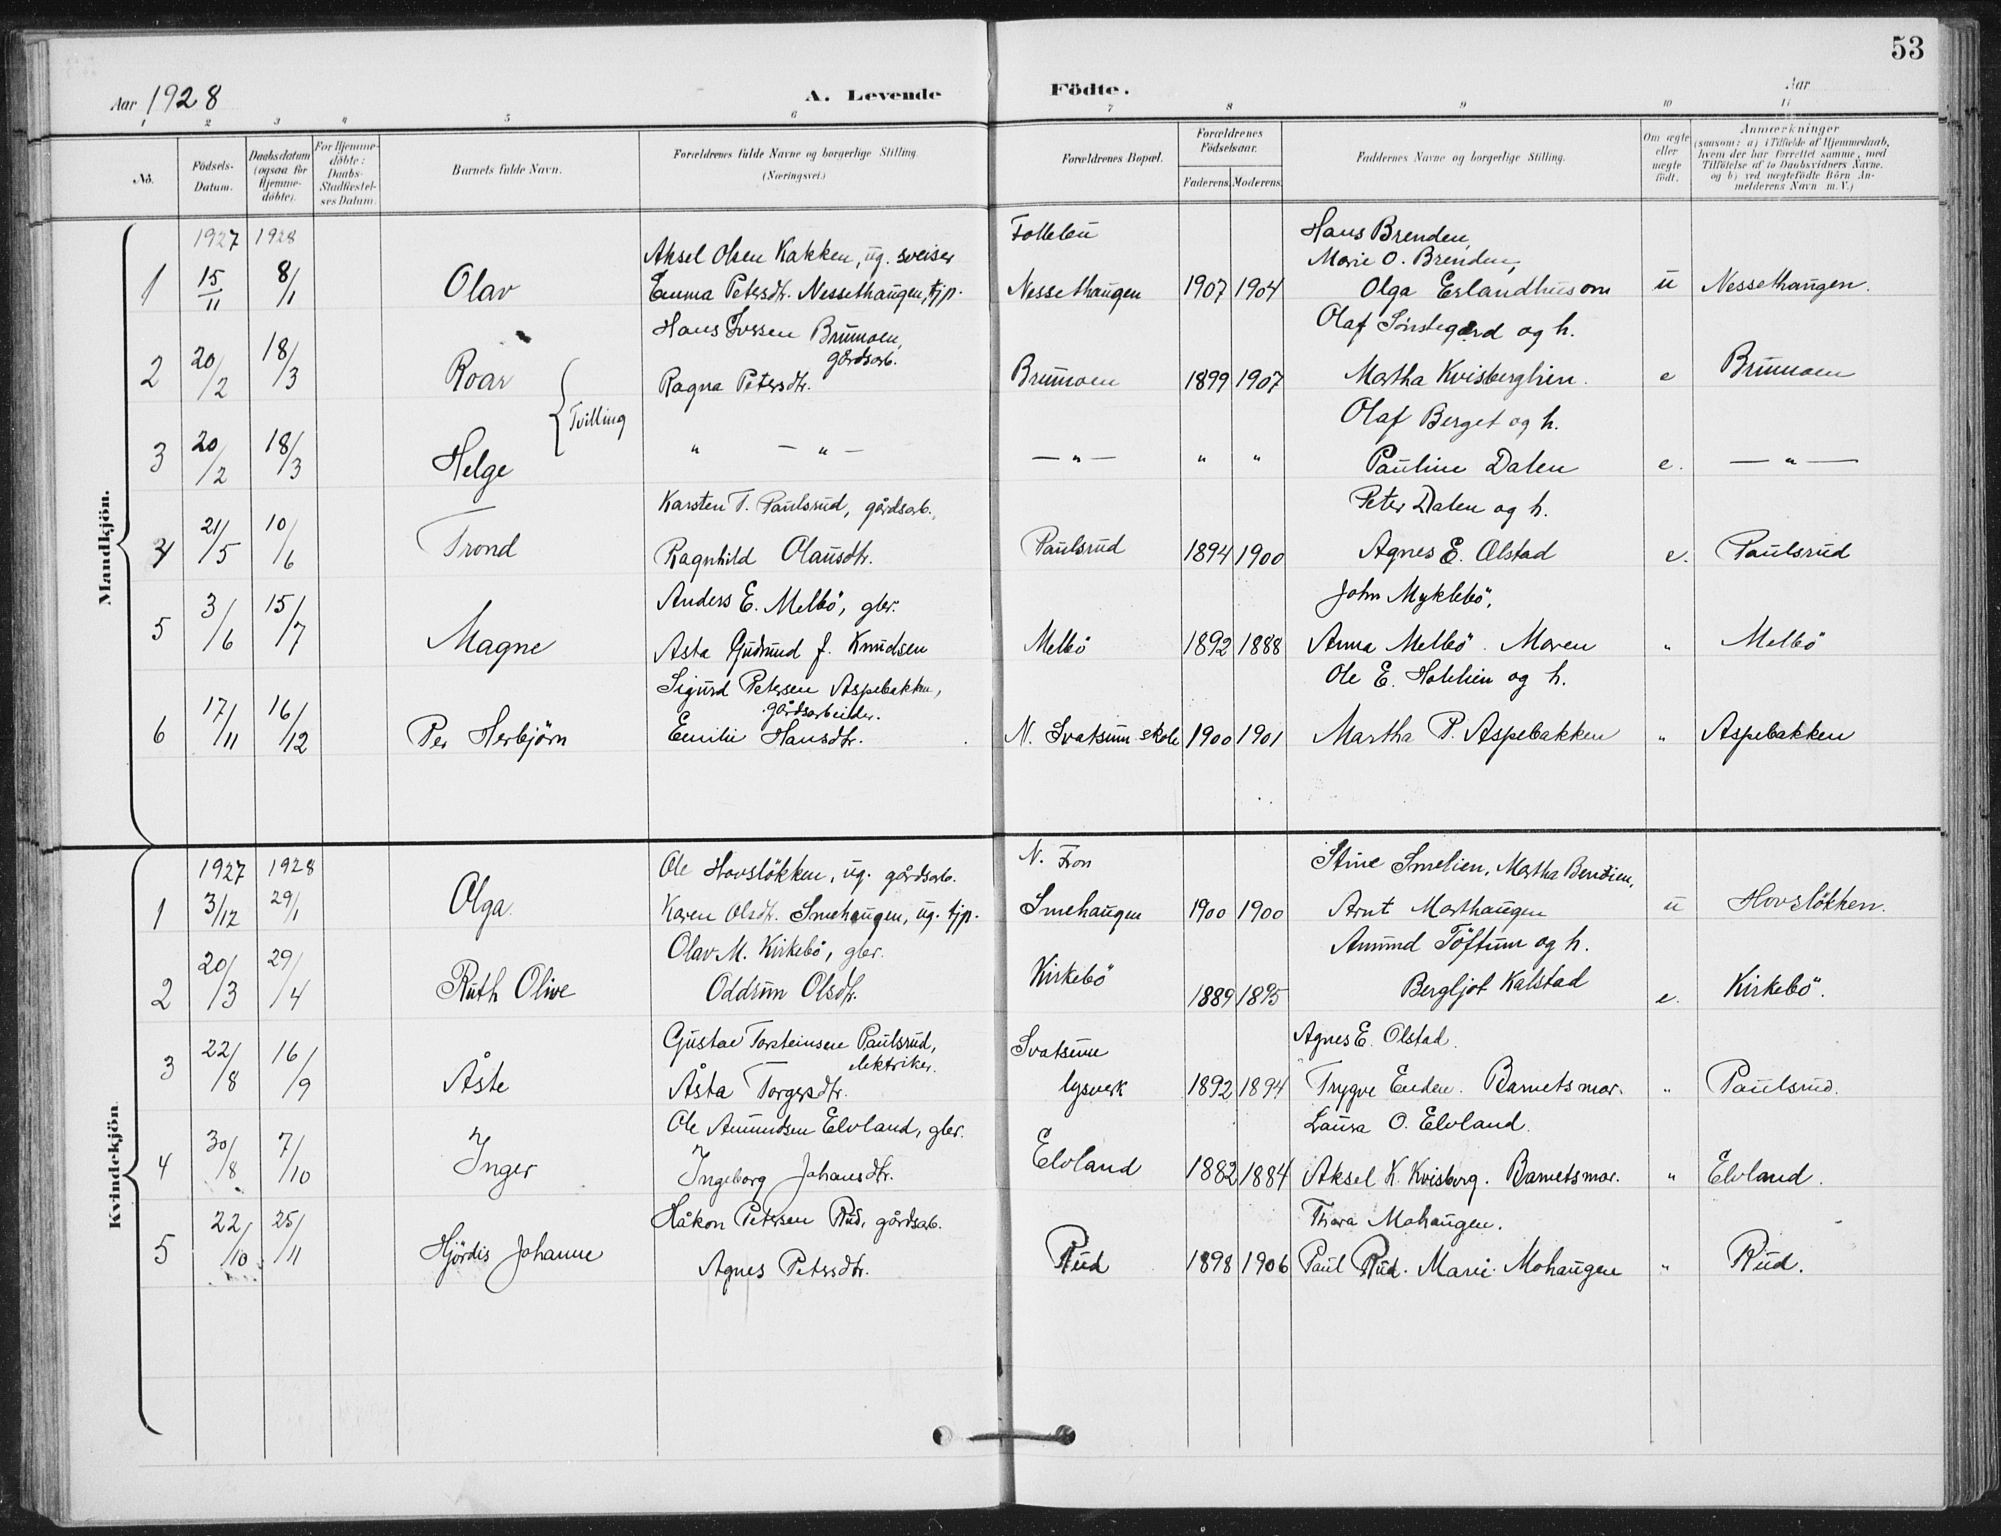 53
Aar 1928
A. Levende Födte.
Aar
1 2 3 4 5 6 7 8 9 10 11
No.
Födsels-Datum.
Daabsdatum (ogsaa for Hjemme-döbte).
For Hjemme-döbte: Daabs-Stadfæstel-ses Datum.
Barnets fulde Navn.
Forældrenes fulde Navne og borgerlige Stilling. (Næringsvei.)
Forældrenes Bopæl.
Forældrenes Födselsaar.
Faderens. Moderens.
Faddernes Navne og borgerlige Stilling.
Om ægte eller uægte födt.
Anmærkninger
(saasom: a) i Tilfælde af Hjemmedaab, hvem der har forrettet samme, med Tilföielse af to Daabsvidners Navne. og b) ved uægtefödte Börn An-melderens Navn m. V.)
Mandkjön.
1927 1928 Follebu Hans Brenden,
Aksel Olsen Kakken, ug. sveiser Marie O. Brenden,
1 15/11 8/1 Olav Emma Petersdtr. Nessethaugen, tjp. Nessethaugen 1907 1904 Olga Erlandhusom u Nessethaugen.
Hans Iversen Brumoen, gårdsarb. Olaf Sönstegard og h.
2 20/2 18/3 Roar Ragna Petersdtr. Brumoen 1899 1907 Martha Kvisberglien. e Brumoen
Tvilling Olaf Berget og h.
3 20/2 18/3 Helge " — " — — " — " " Pauline Dalen e. — " —
Karsten T. Paulsrud, gårdsarb. Peter Dalen og h.
4 21/5 10/6 Trond Ragnhild Olausdtr. Paulsrud 1894 1900 Agnes E. Olstad e. Paulsrud
Anders E. Melbö, gbr. John Myklebö,
5 3/6 15/7 Magne Asta Gudrund f. Knudsen Melbö 1892 1888 Anna Melbö. Moren " Melbö
Sigurd Petersen Aspebakken, gårdsarbeider. Ole E. Holilien og h.
6 17/11 16/12 Per Herbjørn Emilie Hansdtr. N. Svatsum skole 1900 1901 Martha P. Aspebakken " Aspebakken
Kvindekjön
1927 1928 Ole Hovslökken, ug. gårdsarb. N. Fron Stine Smelien, Martha Berdien,
1 3/12 29/1 Olga Karen Olsdtr. Smehaugen, ug. tjp. Smehaugen 1900 1900 Arnt Marthaugen u Hovslökken.
Olav M. Kirkebö, gbr. Amund Töftum og h.
2 20/3 29/4 Ruth Olive Oddrun Olsdtr. Kirkebö 1889 1895 Bergljot Kalstad e. Kirkebö.
Gustav Torsteinsen Paulsrud, elektriker. Svatsum Agnes E. Olstad.
3 22/8 16/9 Åste Åsta Torgersdtr. lysverk 1892 1894 Trygve Enden. Barnets mor. " Paulsrud.
Ole Amundsen Elvland, gbr. Laura O. Elvland.
4 30/8 7/10 Inger Ingeborg Johansdtr. Elvland 1882 1884 Aksel K. Kvisberg. Barnets mor. " Elvland.
Håkon Petersen Rud, gårdsarb. Thora Mohaugen.
5 22/10 25/11 Hjördis Johanne Agnes Petersdtr. Rud 1898 1906 Paul Rud. Marie Mohaugen " Rud.